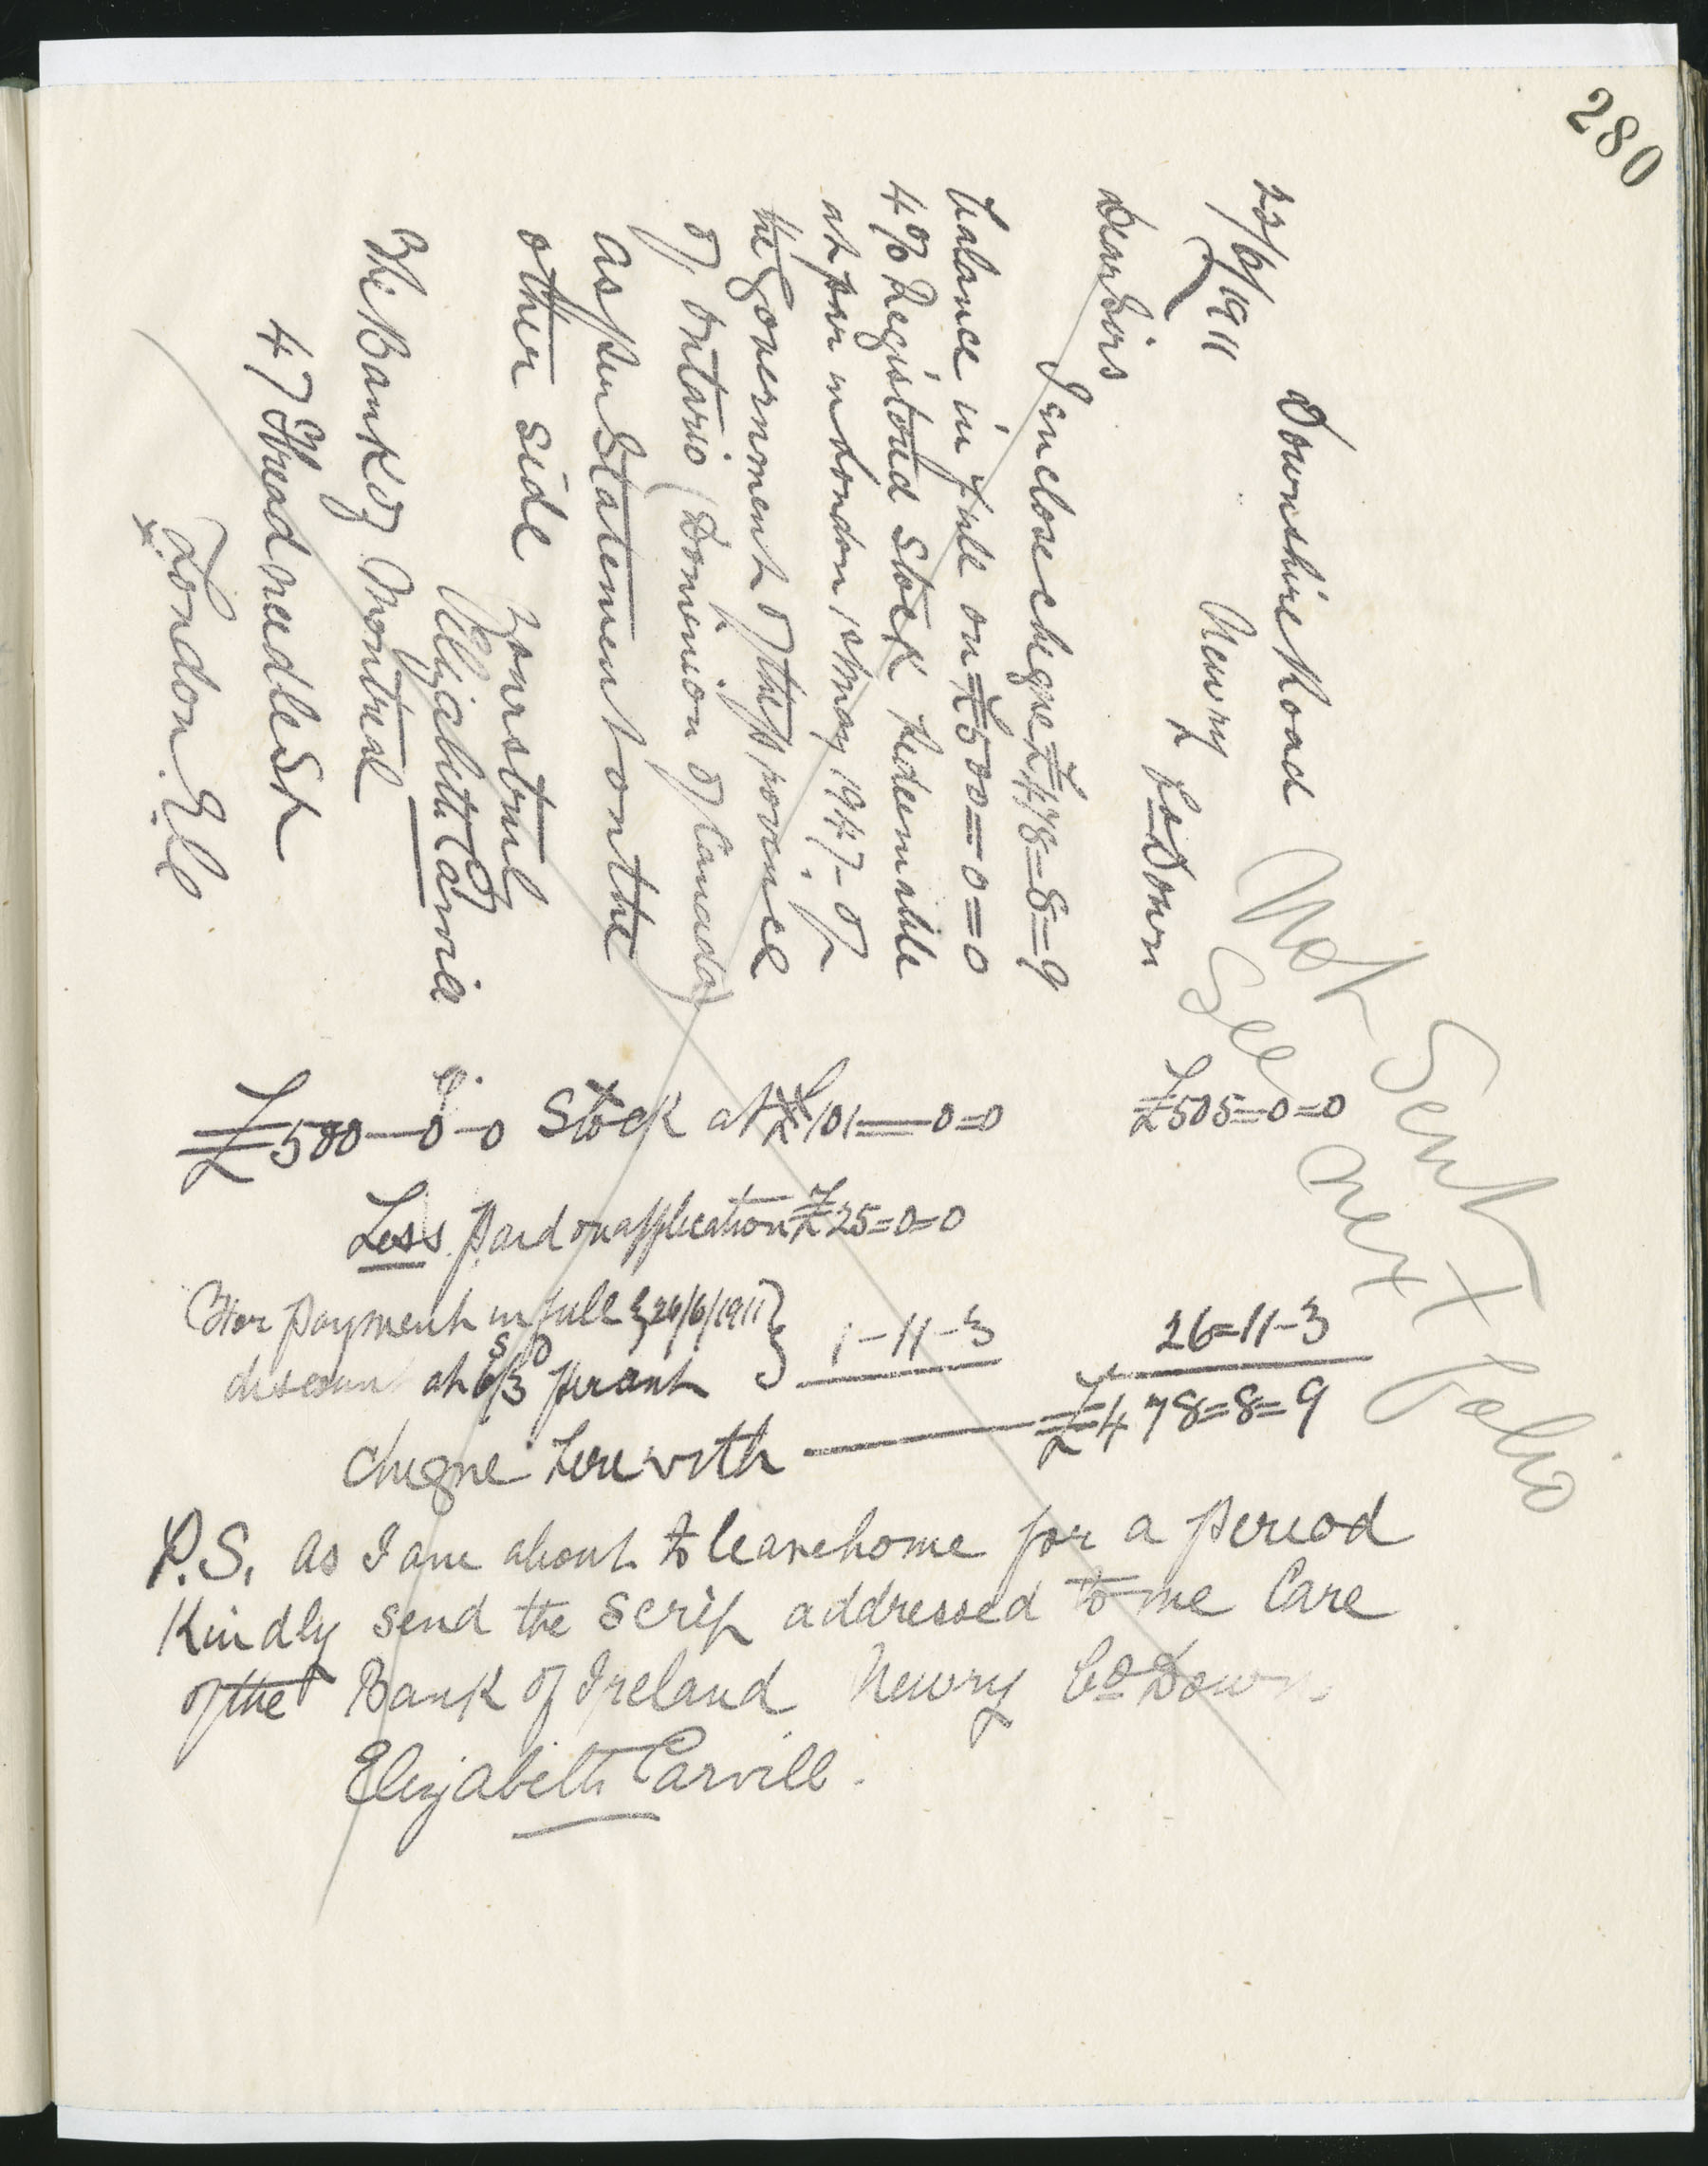 280
Downshire Road
Newry
Co Down
22/6/1911
Dear Sirs
I enclose cheque £478=8=9
balance in full on £500=0=0
4% Registered Stock redeemable
at par in London 1st May 1947 - of
the Government of the province
of Ontario (Dominion of Canada)
as per Statement on the
other side
Yours truly
Elizabeth Carvill
The Bank of Montreal
47 Threadneedle St
London. E.C
Not Sent
See next folio
£500-0-0 Stock at £101=0=0 £505=0=0
Less paid on application £25=0=0
For payment in full {26/6/1911}
discount at 6/3 per cent } 1-11-3 26=11-3
cheque herewith £478=8=9
P.S. as I am about to leave home for a period
Kindly send the scrip addressed to me Care
of the Bank of Ireland Newry Co Down
Elizabeth Carvill.